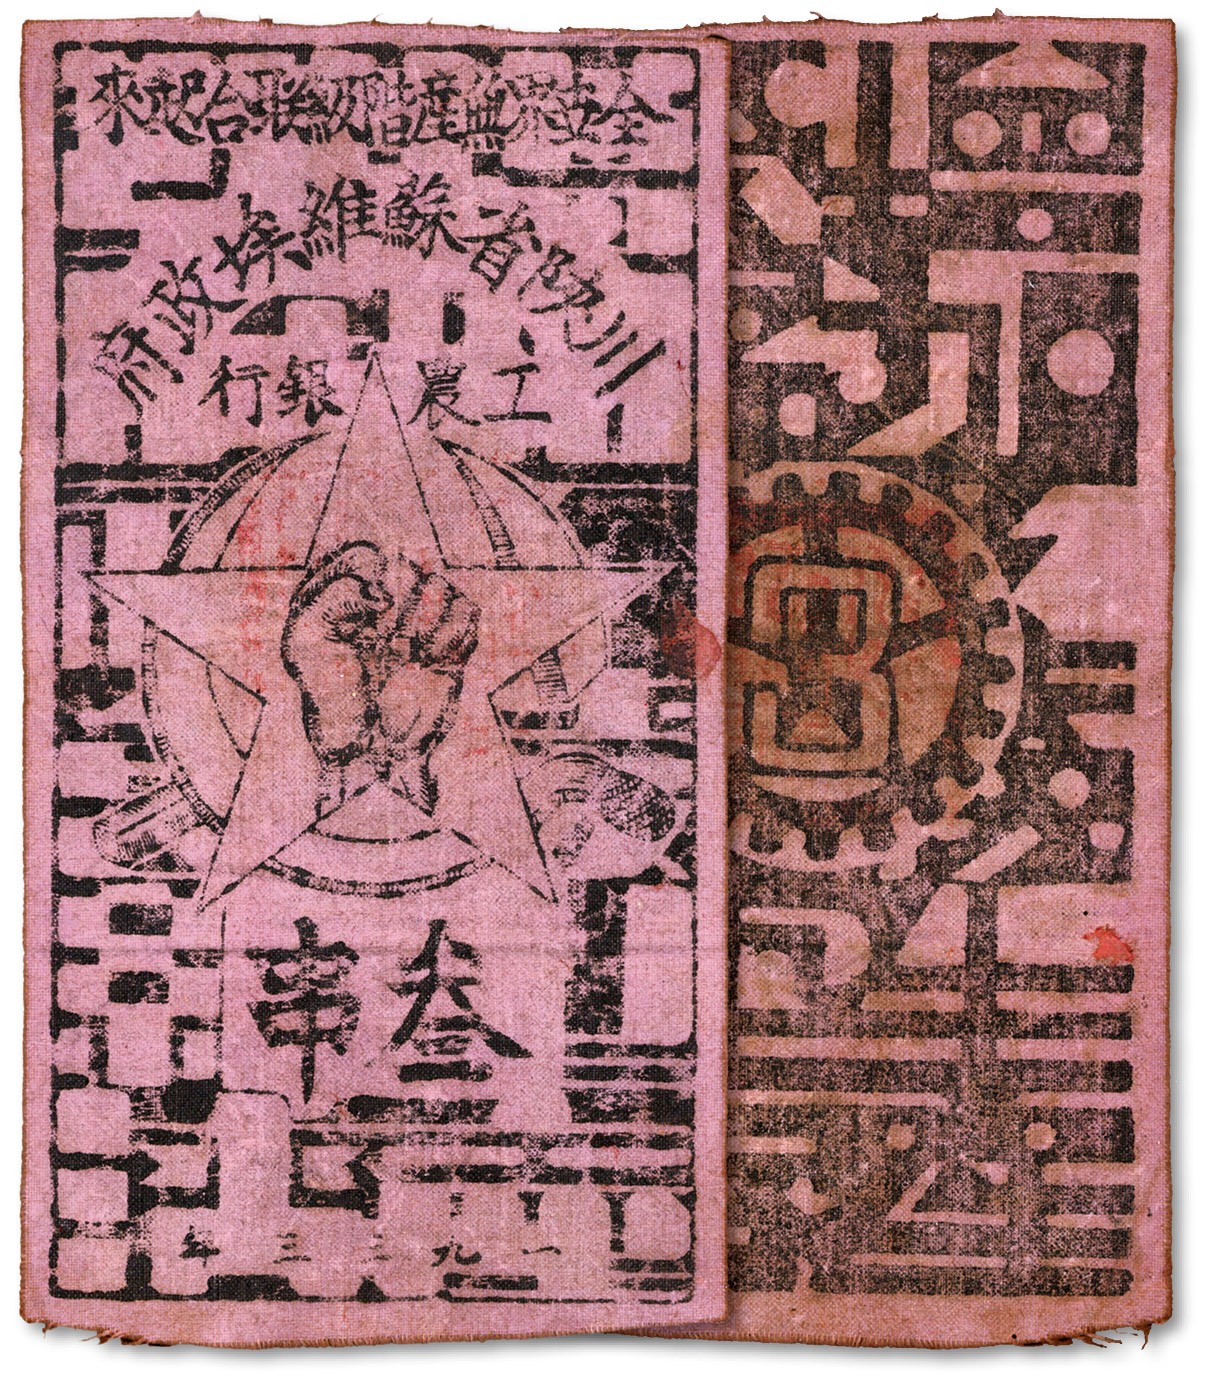 全世界無產階級联合起來
川陝省蘇維埃政府
工農銀行
叁串
一九三三年
3